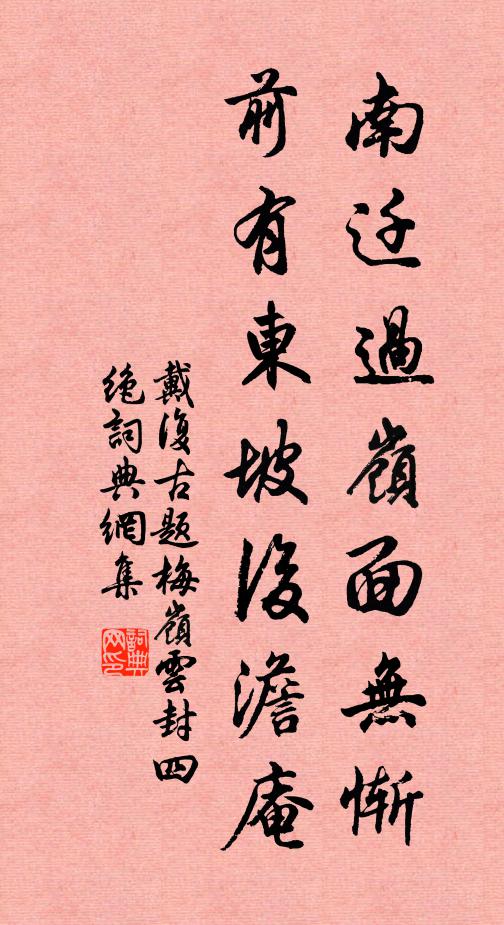 南迁過嶺面無慚
前有東坡後澹庵
戴復古題梅嶺雲封四
絶詞典網集
詞典网印